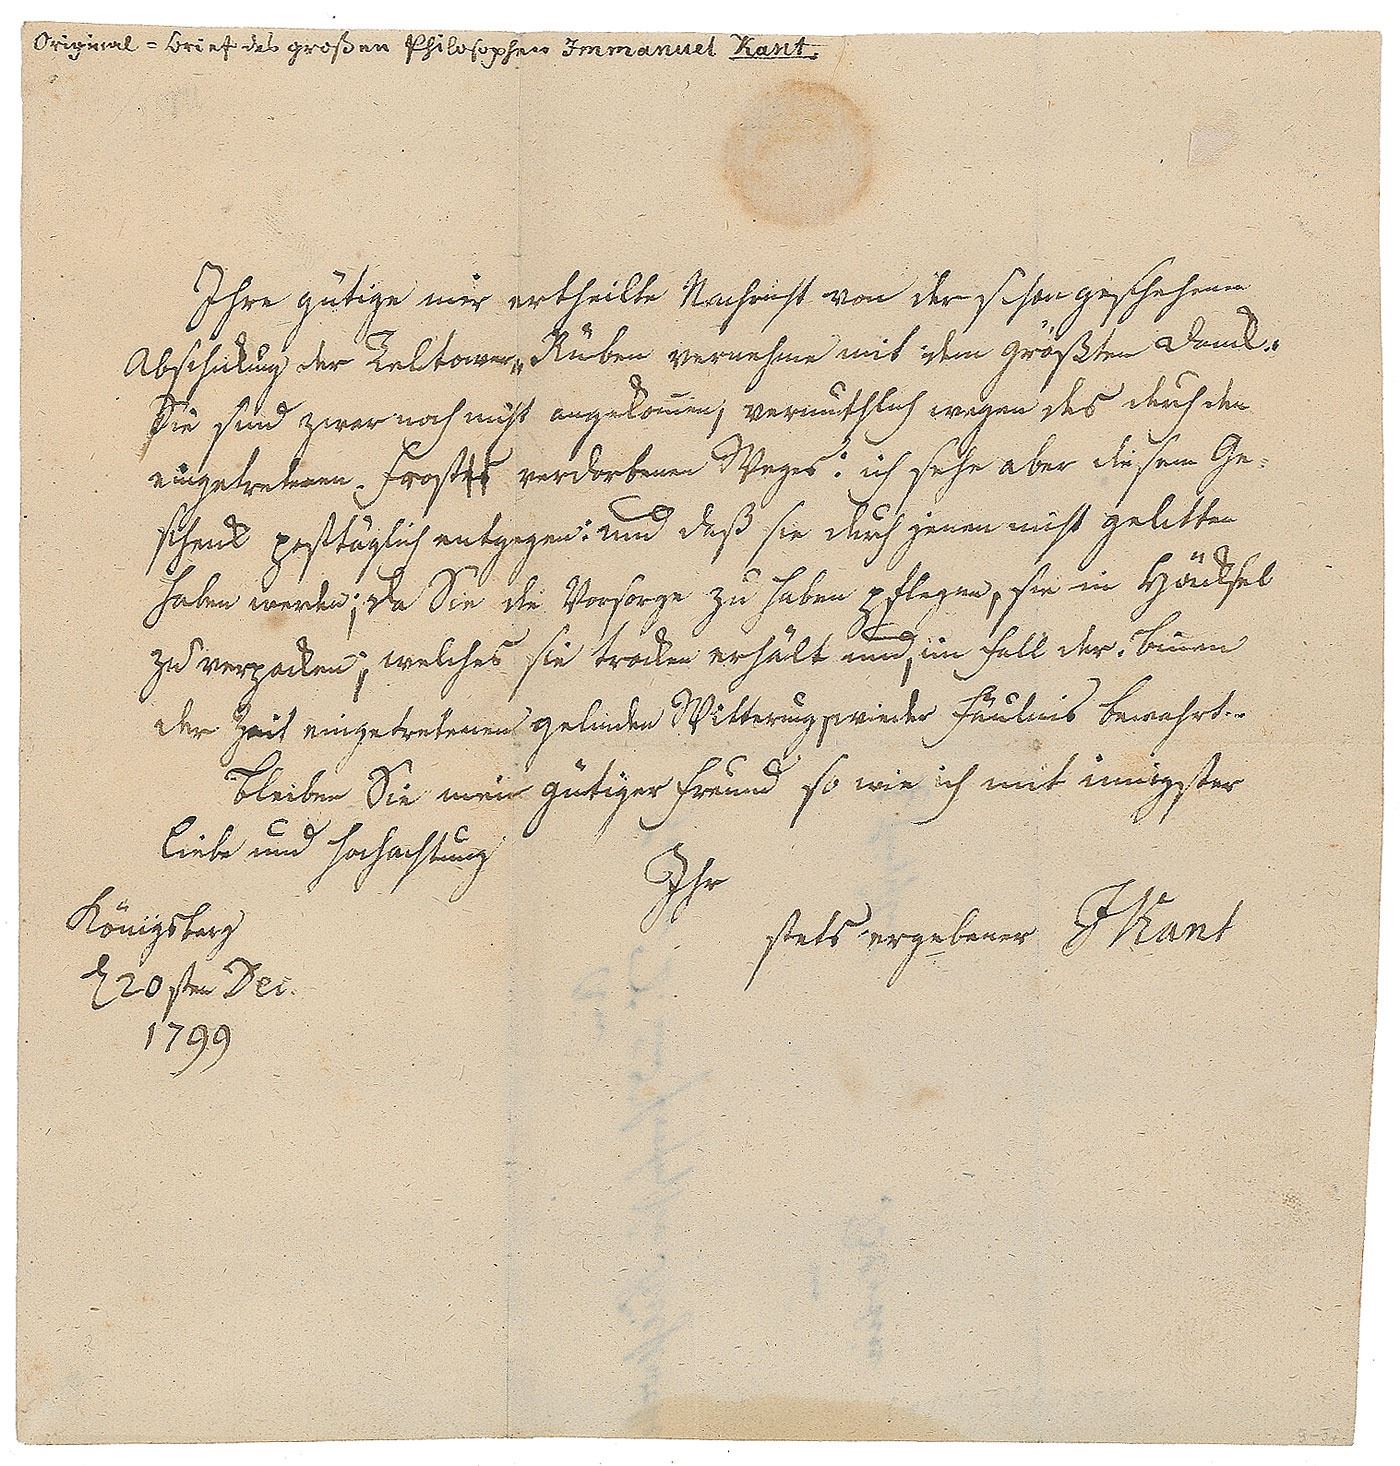 Original = Brief des großen Philosophen Immanuel Kant.
Ihre gütige mir ertheilte Nachricht von der schon geschehenen
Abschickung der Teltower„ Rüben vernehme mit dem größten Dank.
Sie sind zwar noch nicht angekom̅en; vermuthlich wegen des durch den
eingetretenen Frostes verdorbenen Weges: ich sehe aber diesem Ge-
schenk posttäglich entgegen: und daß sie durch jenen nicht gelitten
haben werden; da Sie die Vorsorge zu haben pflegen, sie in Häcksel
zu verpacken; welches sie trocken erhält und, im Fall der bin̅en
der Zeit eingetretenen gelinden Witterung, wieder Fäulnis bewahrt.
Bleiben Sie mein gütiger Freund so wie ich mit in̅igster
Liebe und Hochachtung
Ihr
stets ergebener JKant
Königsberg
d 20sten Dec.
1799